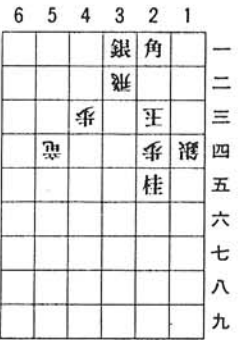 6 5 4 3 2 1
銀 角 一
飛 二
歩 玉 三
竜 歩 銀 四
桂 五
六
七
八
九